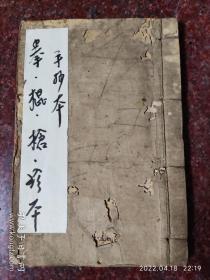 手抄本
拳·棍·槍·本
2022.04.18 22:19